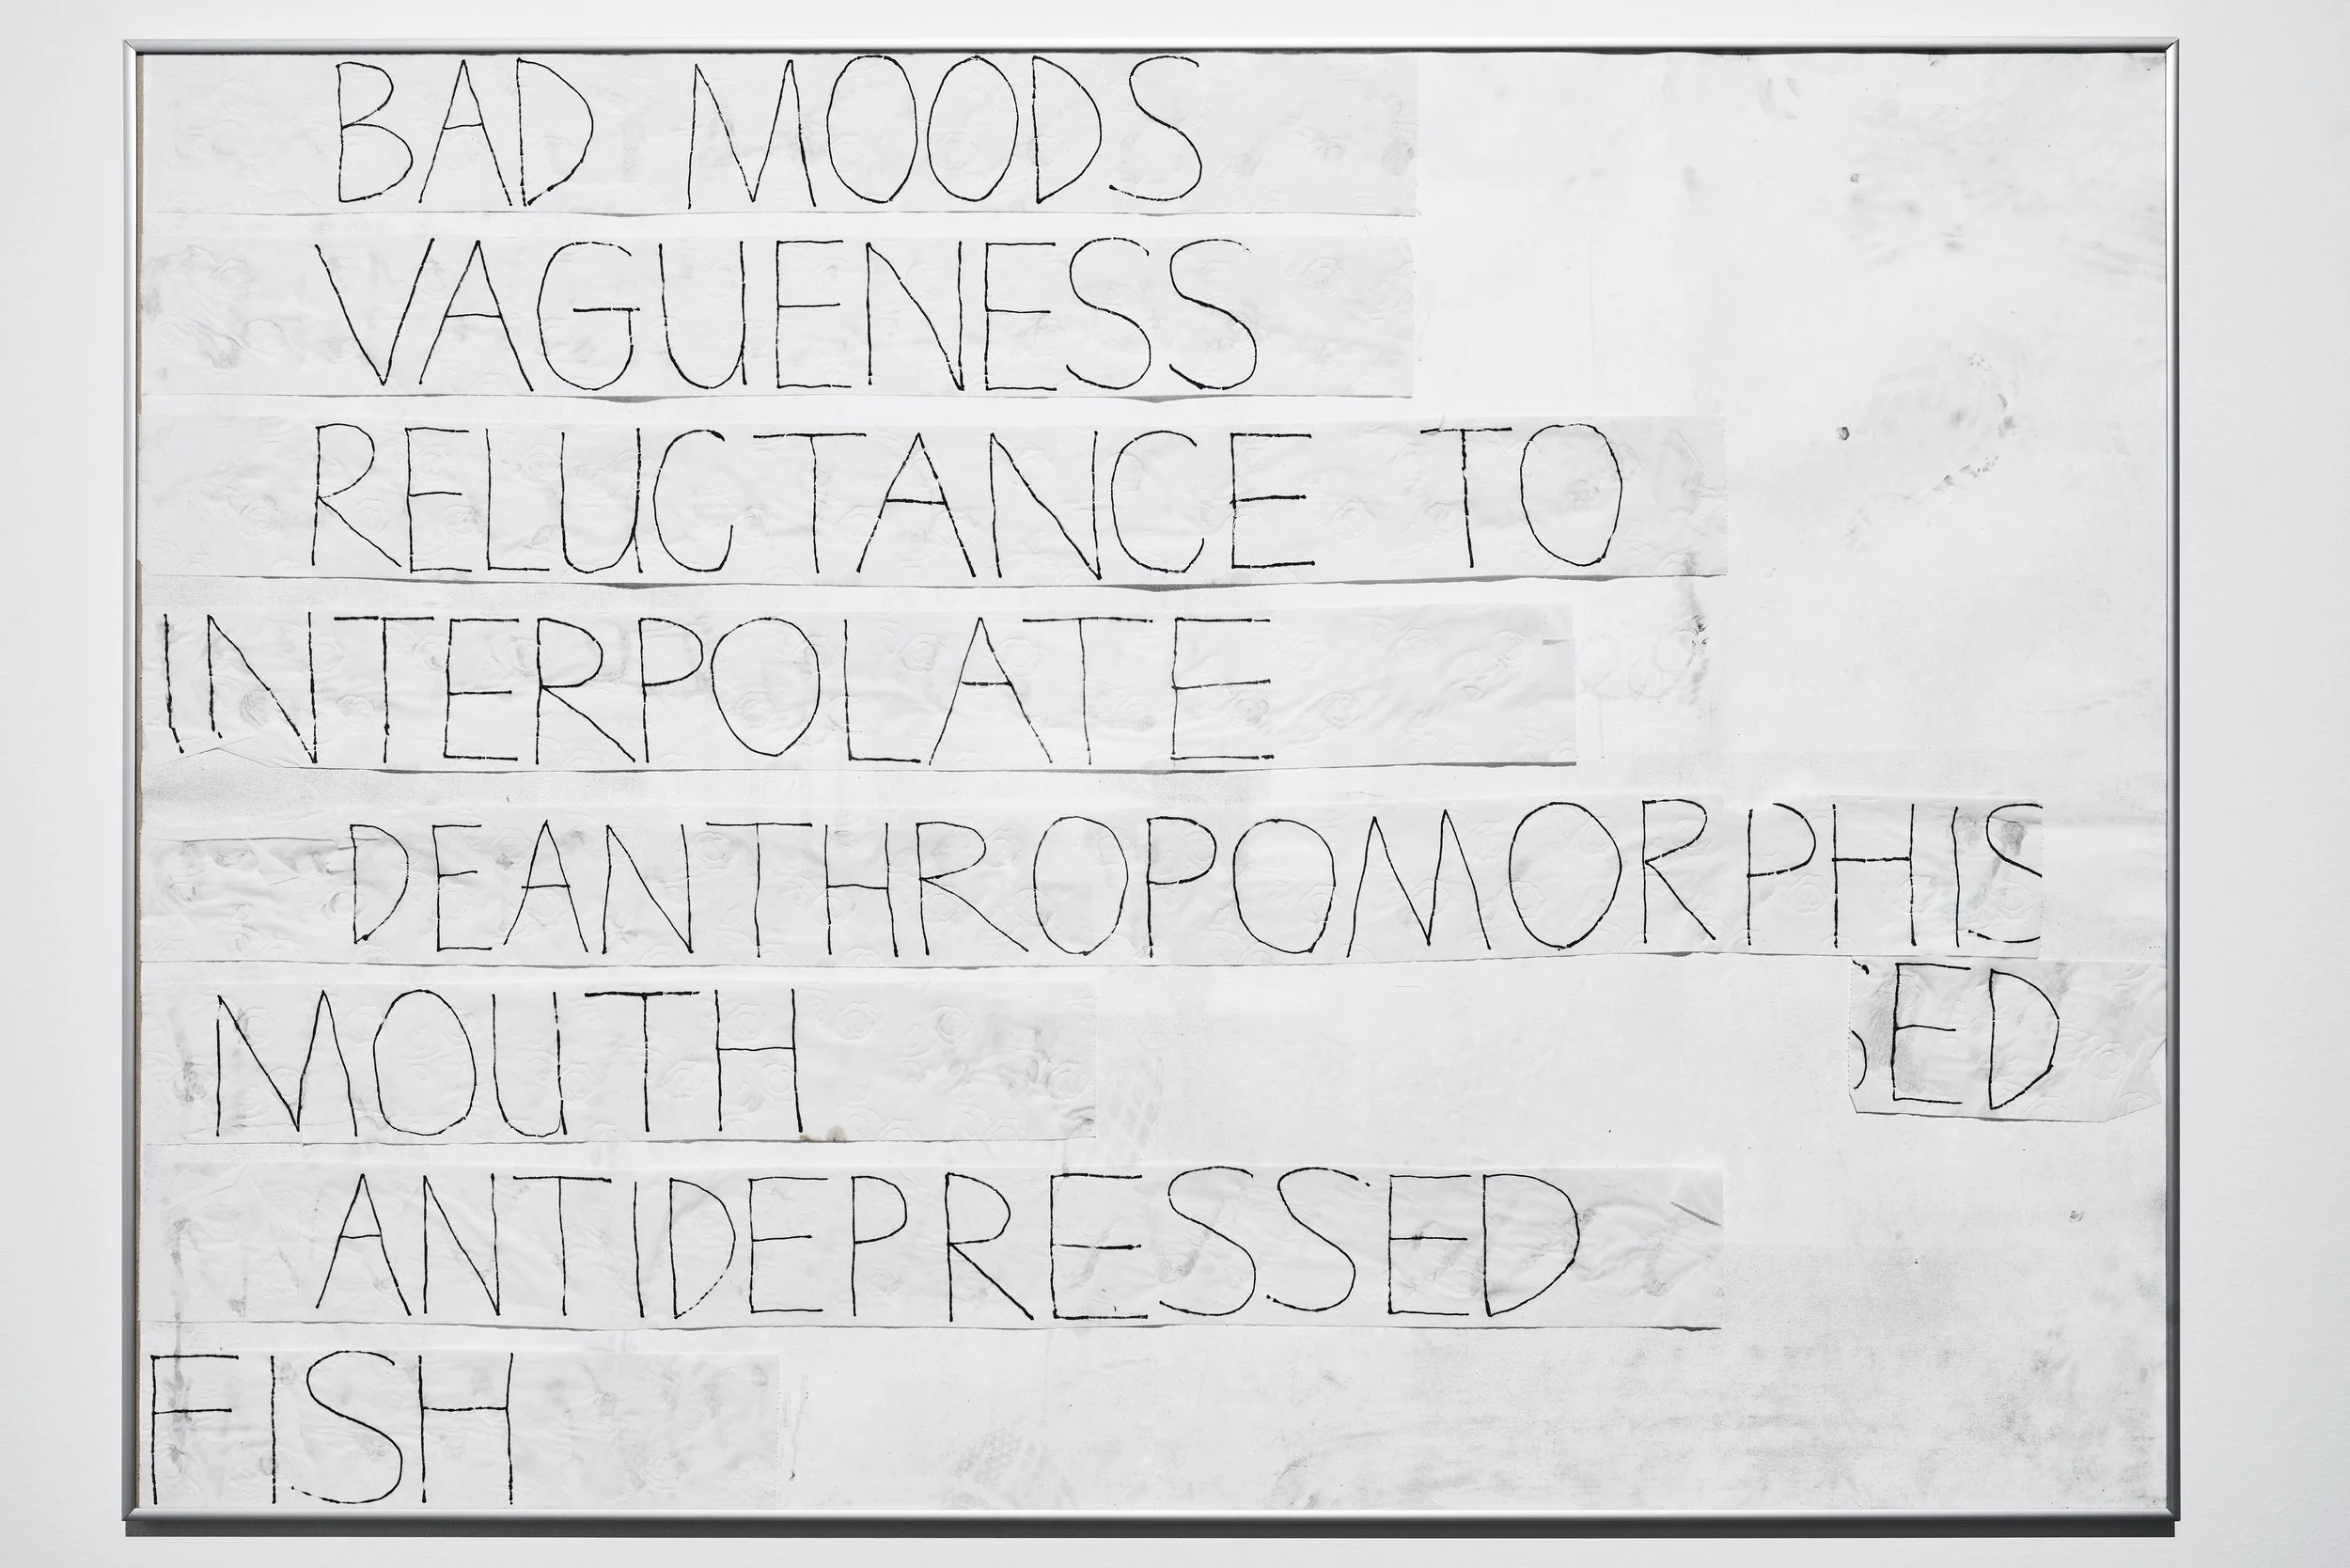 BAD MOODS
VAGUENESS
RELUCTANCE TO
INTERPOLATE
DEANTHROPOMORPHIS
ED
MOUTH
ANTIDEPRESSED
FISH